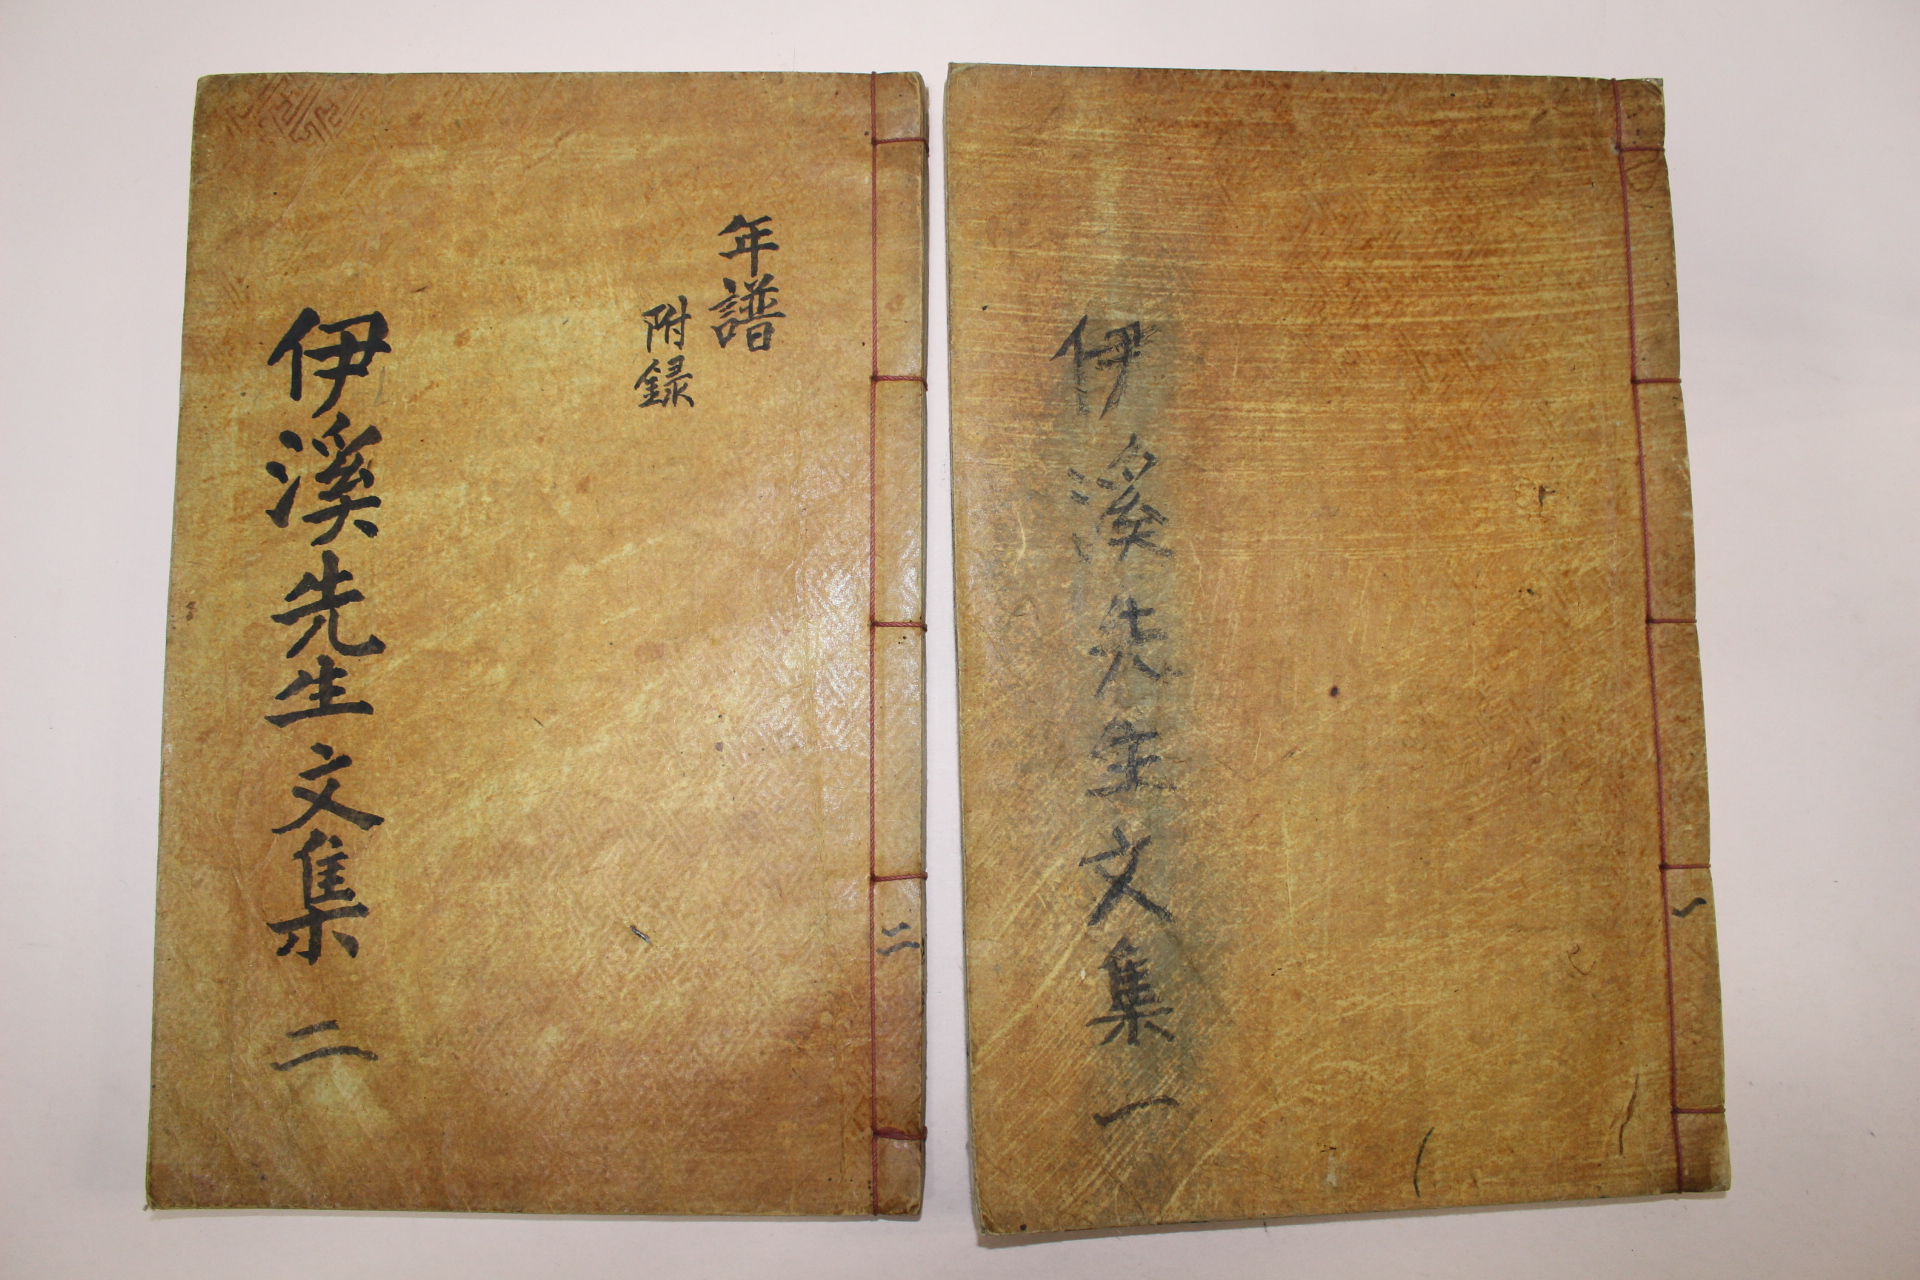 伊溪先生文集 一
一
二
年譜
附録
伊溪先生文集 二